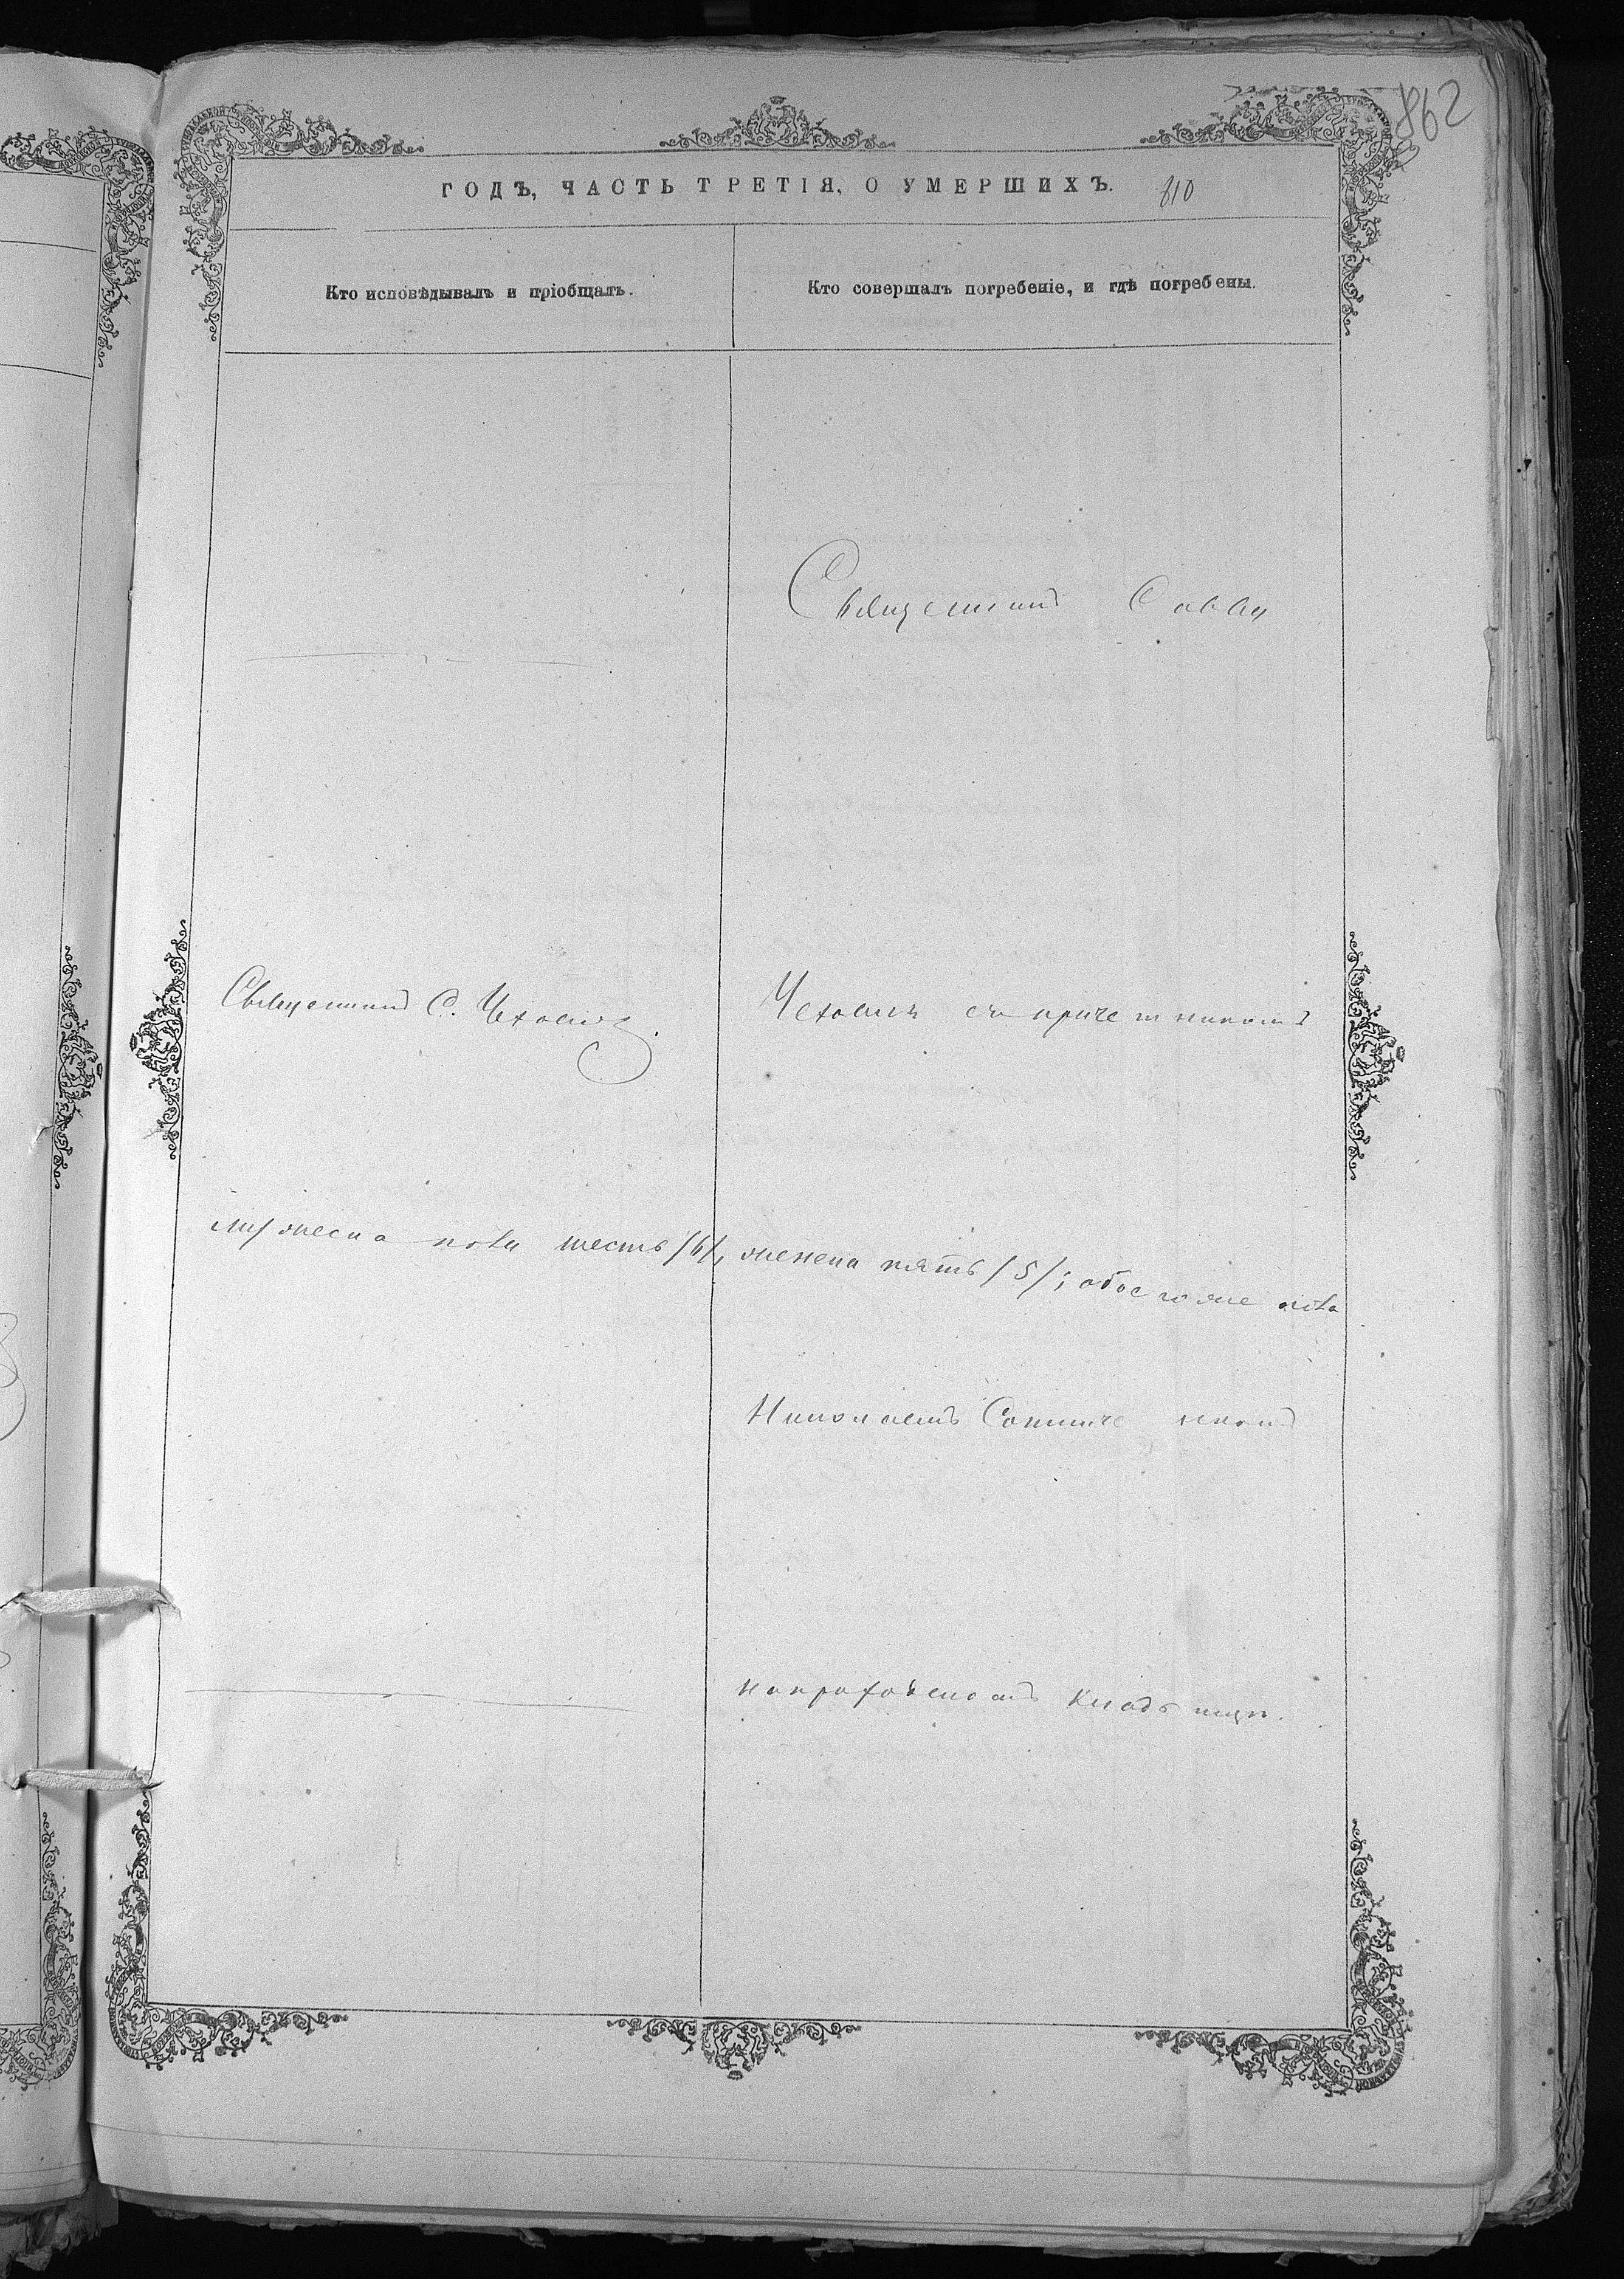 862
ГОДЪ, ЧАСТЬ ТРЕТІЯ, О УМЕРШИХЪ. 810
Кто исповѣдывалъ и пріобщалъ.
Кто совершалъ погребеніе, и гдѣ погребены.
Священникъ Савва
Священникъ С. Чехович.
Чехович съ причетникомъ
мужеска пола шесть /6/, женска пять /5/; обоего же пола
Николаемъ
на приходскомъ кладбищѣ.